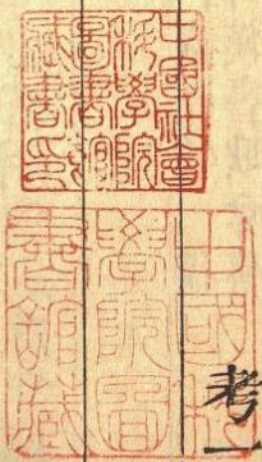 中國社會
科學院
圖書館
藏書印
中國科
學院圖
書舘藏
考一